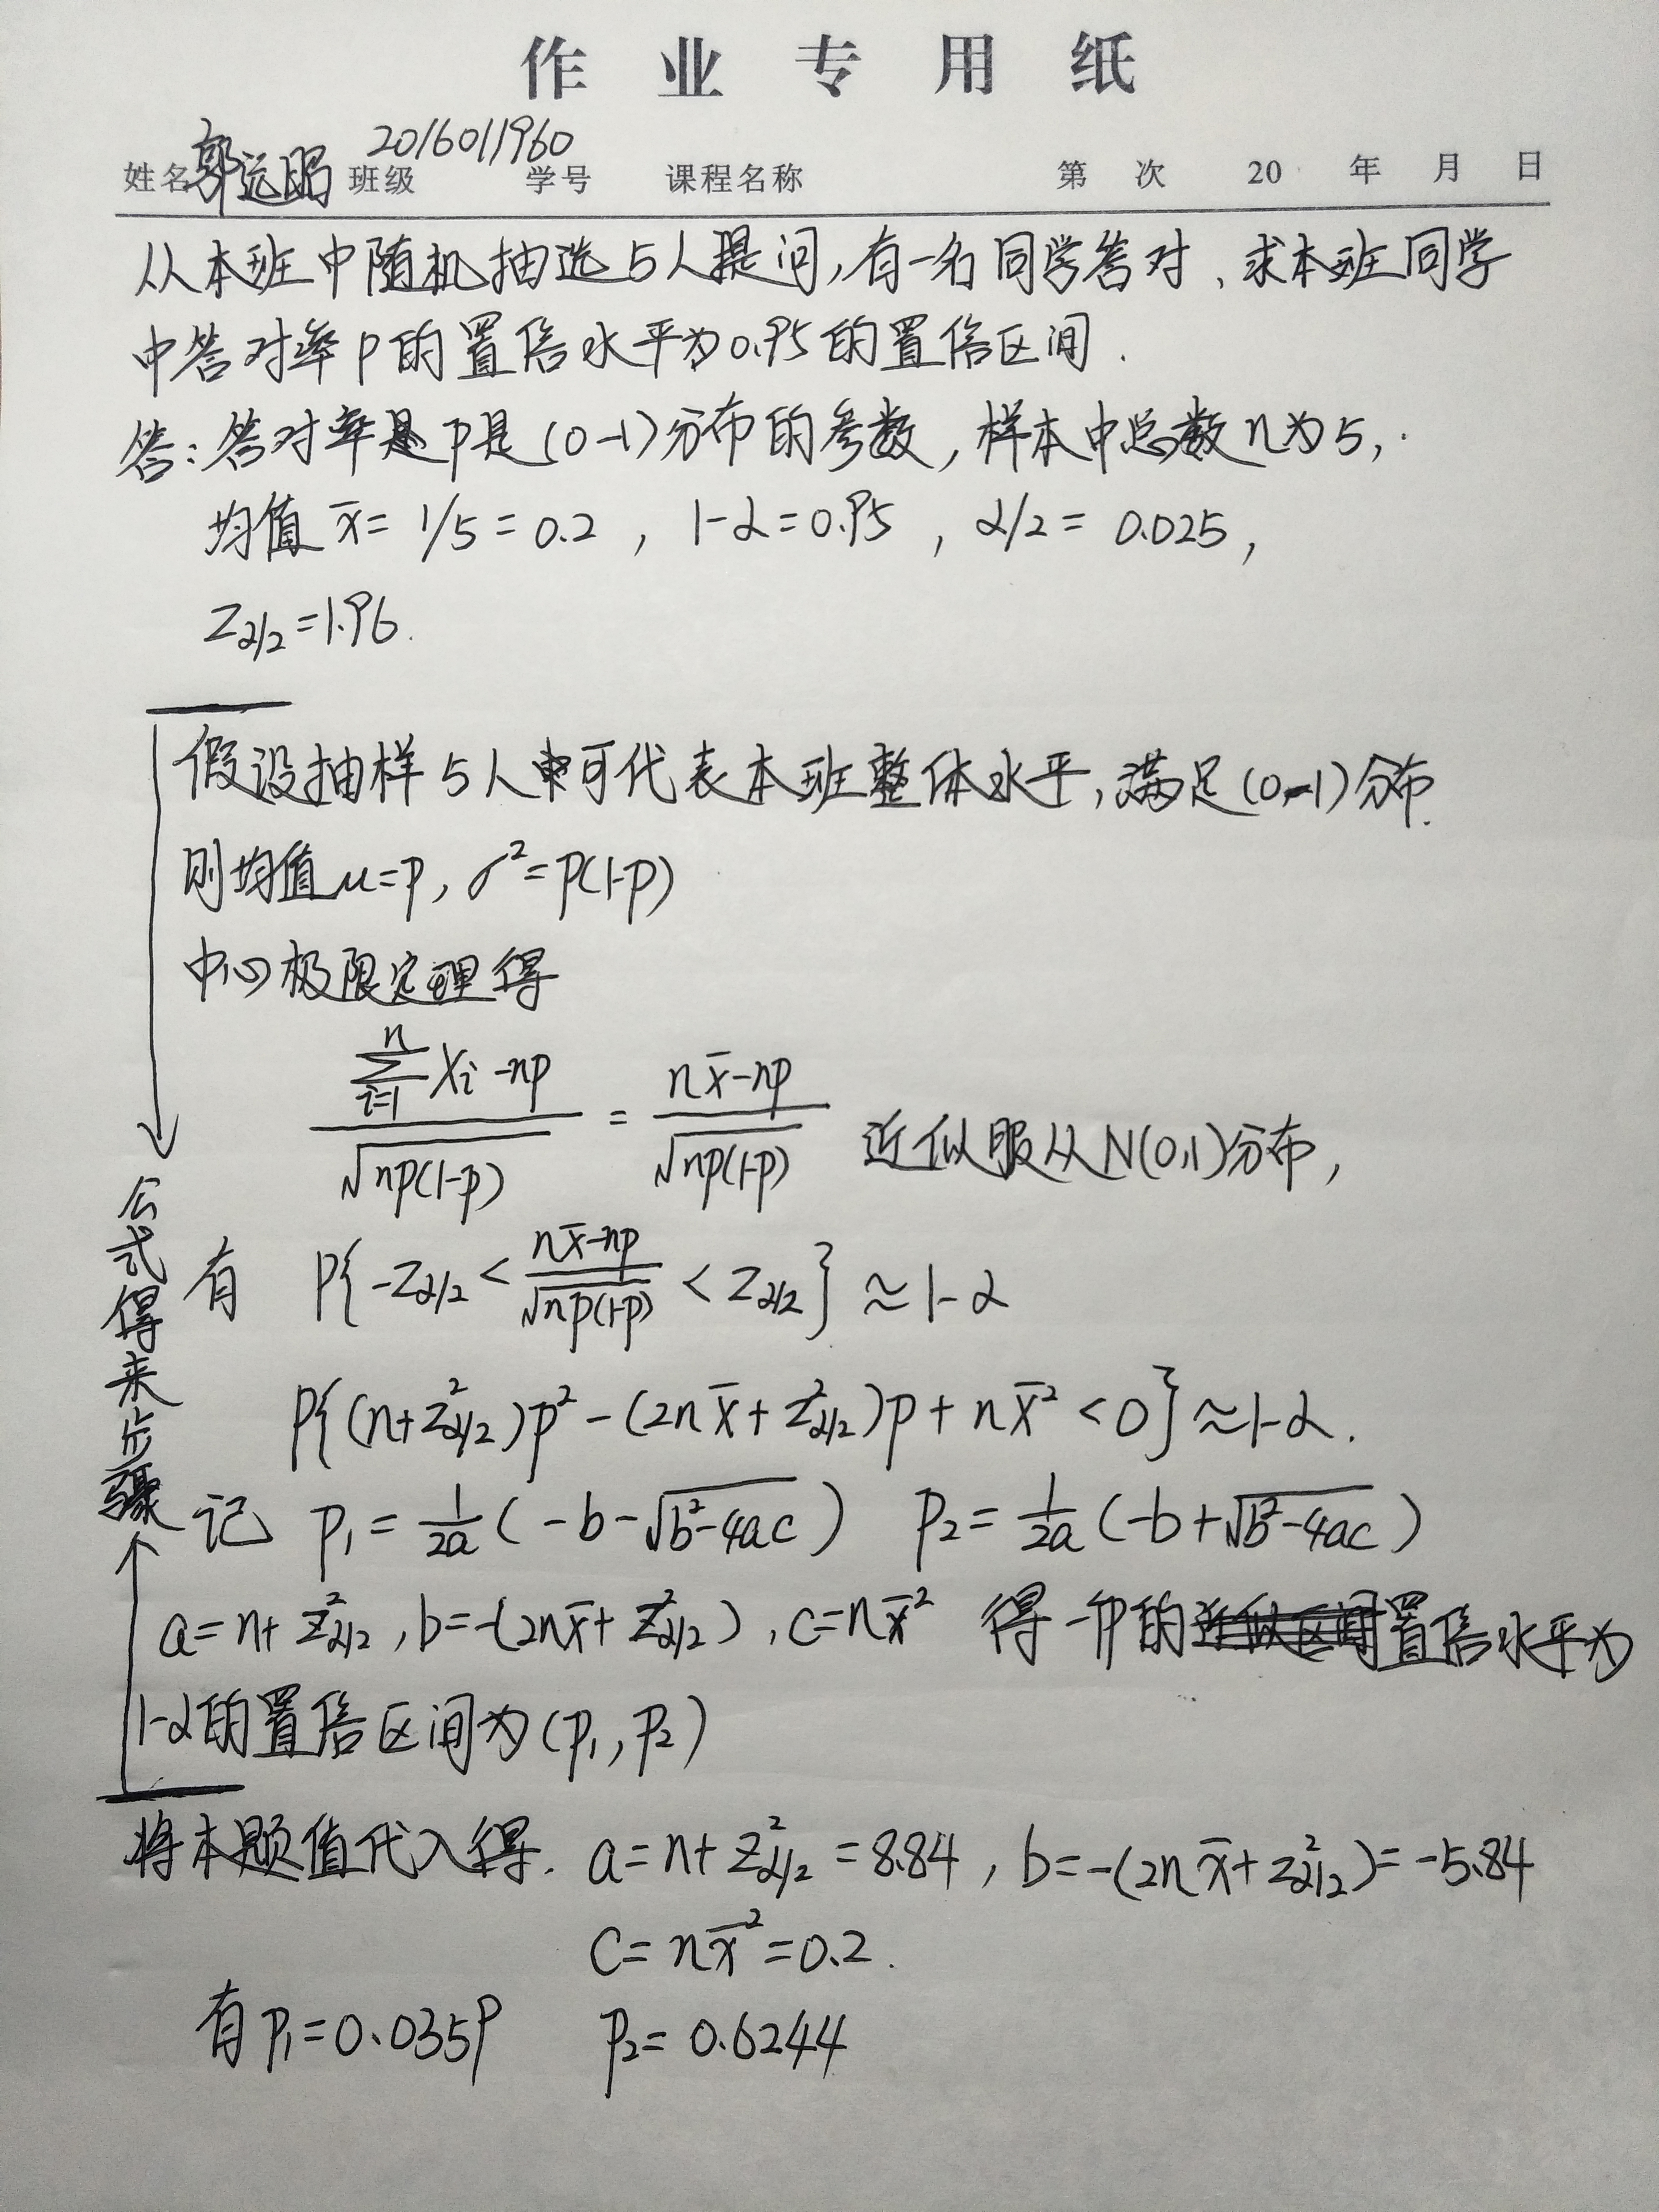 作业专用纸
姓名 郭远昭 班级 2016011960 学号 课程名称 第 次 20 年 月 日
从本班中随机抽选5人提问,有一名同学答对、求本班同学
中答对率p的置信水平为0.95的置信区间.
答:答对率是p是(0-1)分布的参数,样本中总数n为5,
均值 x̄=1/5=0.2, 1-α=0.95, α/2=0.025,
Z_{α/2}=1.96.
假设抽样5人可代表本班整体水平,满足(0-1)分布.
则均值μ=p, σ²=p(1-p)
中心极限定理得
\frac{\sum_{i=1}^{n}X_i-np}{\sqrt{np(1-p)}}=\frac{n\bar{x}-np}{\sqrt{np(1-p)}} 近似服从N(0,1)分布,
有 P{-Z_{α/2}<\frac{n\bar{x}-np}{\sqrt{np(1-p)}}<Z_{α/2}}≈1-α
P{(n+Z²_{α/2})p²-(2nx̄+Z²_{α/2})p+nx̄²<0}≈1-α.
记 p₁=\frac{1}{2a}(-b-\sqrt{b²-4ac}) p₂=\frac{1}{2a}(-b+\sqrt{b²-4ac})
a=n+Z²_{α/2}, b=-(2nx̄+Z²_{α/2}), c=nx̄² 得一p的置信水平为
1-α的置信区间为(p₁,p₂)
公式得来步骤
将本题值代入得. a=n+Z²_{α/2}=8.84, b=-(2nx̄+Z²_{α/2})=-5.84
C=nx̄²=0.2.
有p₁=0.0359 p₂=0.6244